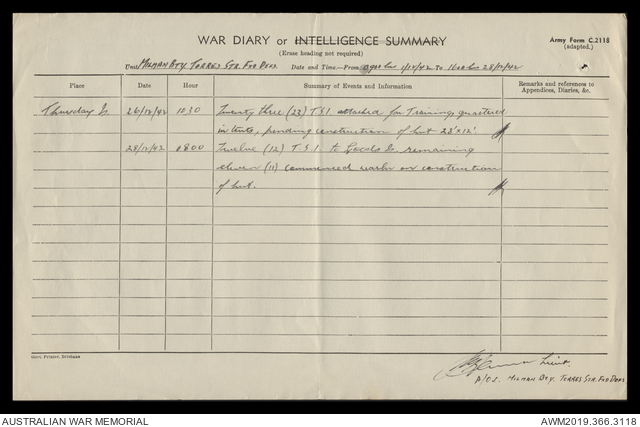 WAR DIARY or INTELLIGENCE SUMMARY
(Erase heading not required)
Army Form C.2118
(adapted.)
Unit MILMAN BTY. TORRES STR. FXD DEFS. Date and Time—From 0900 hrs 1/12/42 To 1600 hrs 28/12/42
Place Date Hour Summary of Events and Information Remarks and references to Appendices, Diaries, &c.
Thursday Is 26/12/42 1030 Twenty three (23) T.S.I. attached for Training, quartered
in tents, pending construction of hut 23' x 12'.
28/12/42 0800 Twelve (12) T.S.I. to Is. remaining
eleven (11) commenced work on construction
of hut.
Govt. Printer, Brisbane
Lieut.
MILMAN BTY. TORRES STR. FXD DEFS
AUSTRALIAN WAR MEMORIAL
AWM2019.366.3118